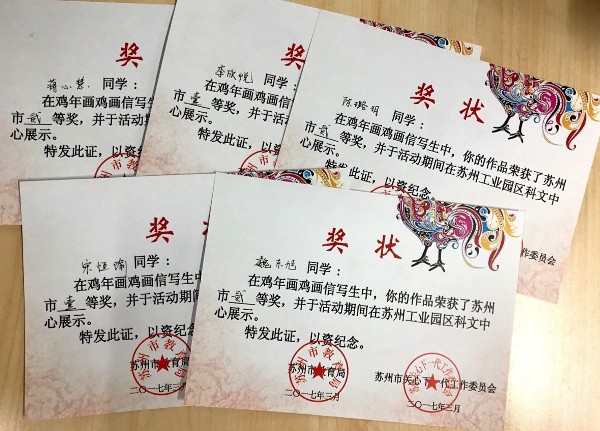 奖
同学：
在鸡年画鸡画信写生
市 贰 等奖，并于活动期
心展示。
特发此证，以资纪
奖
李欣悦 同学：
在鸡年画鸡画信写生中
市 壹 等奖，并于活动期间
心展示。
特发此证，以资纪念
奖 状
同学：
在鸡年画鸡画信写生中，你的作品荣获了苏州
市 贰 等奖，并于活动期间在苏州工业园区科文中
心展示。
特发此证，以资纪念。
作委员会
奖 状
宋恒瑜 同学：
在鸡年画鸡画信写生中
市 壹 等奖，并于活动期间
心展示。
特发此证，以资纪念
苏州市教育局
苏州市教育局
二〇一七年三月
奖 状
魏东旭 同学：
在鸡年画鸡画信写生中，你的作品荣获了苏州
市 贰 等奖，并于活动期间在苏州工业园区科文中
心展示。
特发此证，以资纪念。
苏州市教育局
苏州市教育局
苏州市关心下一代工作委员会
二〇一七年三月
二〇一七年三月